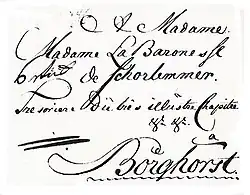 A Madame
Madame La Baronesse
de Schorlemmer.
Tresoriere du très illustre Chapitre
&. &.
à
Borghorst.